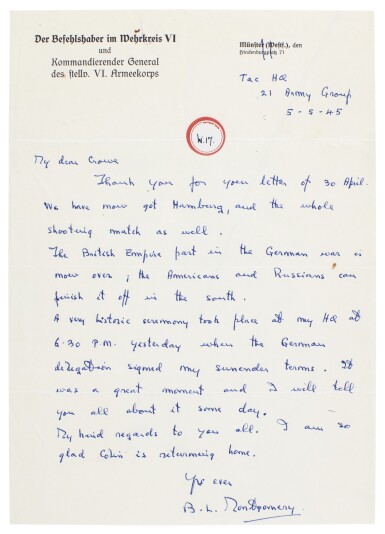 Der Befehlshaber im Wehrkreis VI
und
Kommandierender General
des stellv. VI. Armeekorps
Münster (Westf.), den
Hindenburgplatz 71
Tac HQ
21 Army Group
5-5-45
W.17.
My dear Crowe
Thank you for your letter of 30 April.
We have now got Hamburg, and the whole
shooting match as well.
The British Empire part in the German war is
now over; the Americans and Russians can
finish it off in the south.
A very historic ceremony took place at my HQ at
6.30 P.M. yesterday when the German
delegation signed my surrender terms. It
was a great moment and I will tell
you all about it some day.
My kind regards to you all. I am so
glad Colin is returning home.
Yrs ever
B. L. Montgomery.